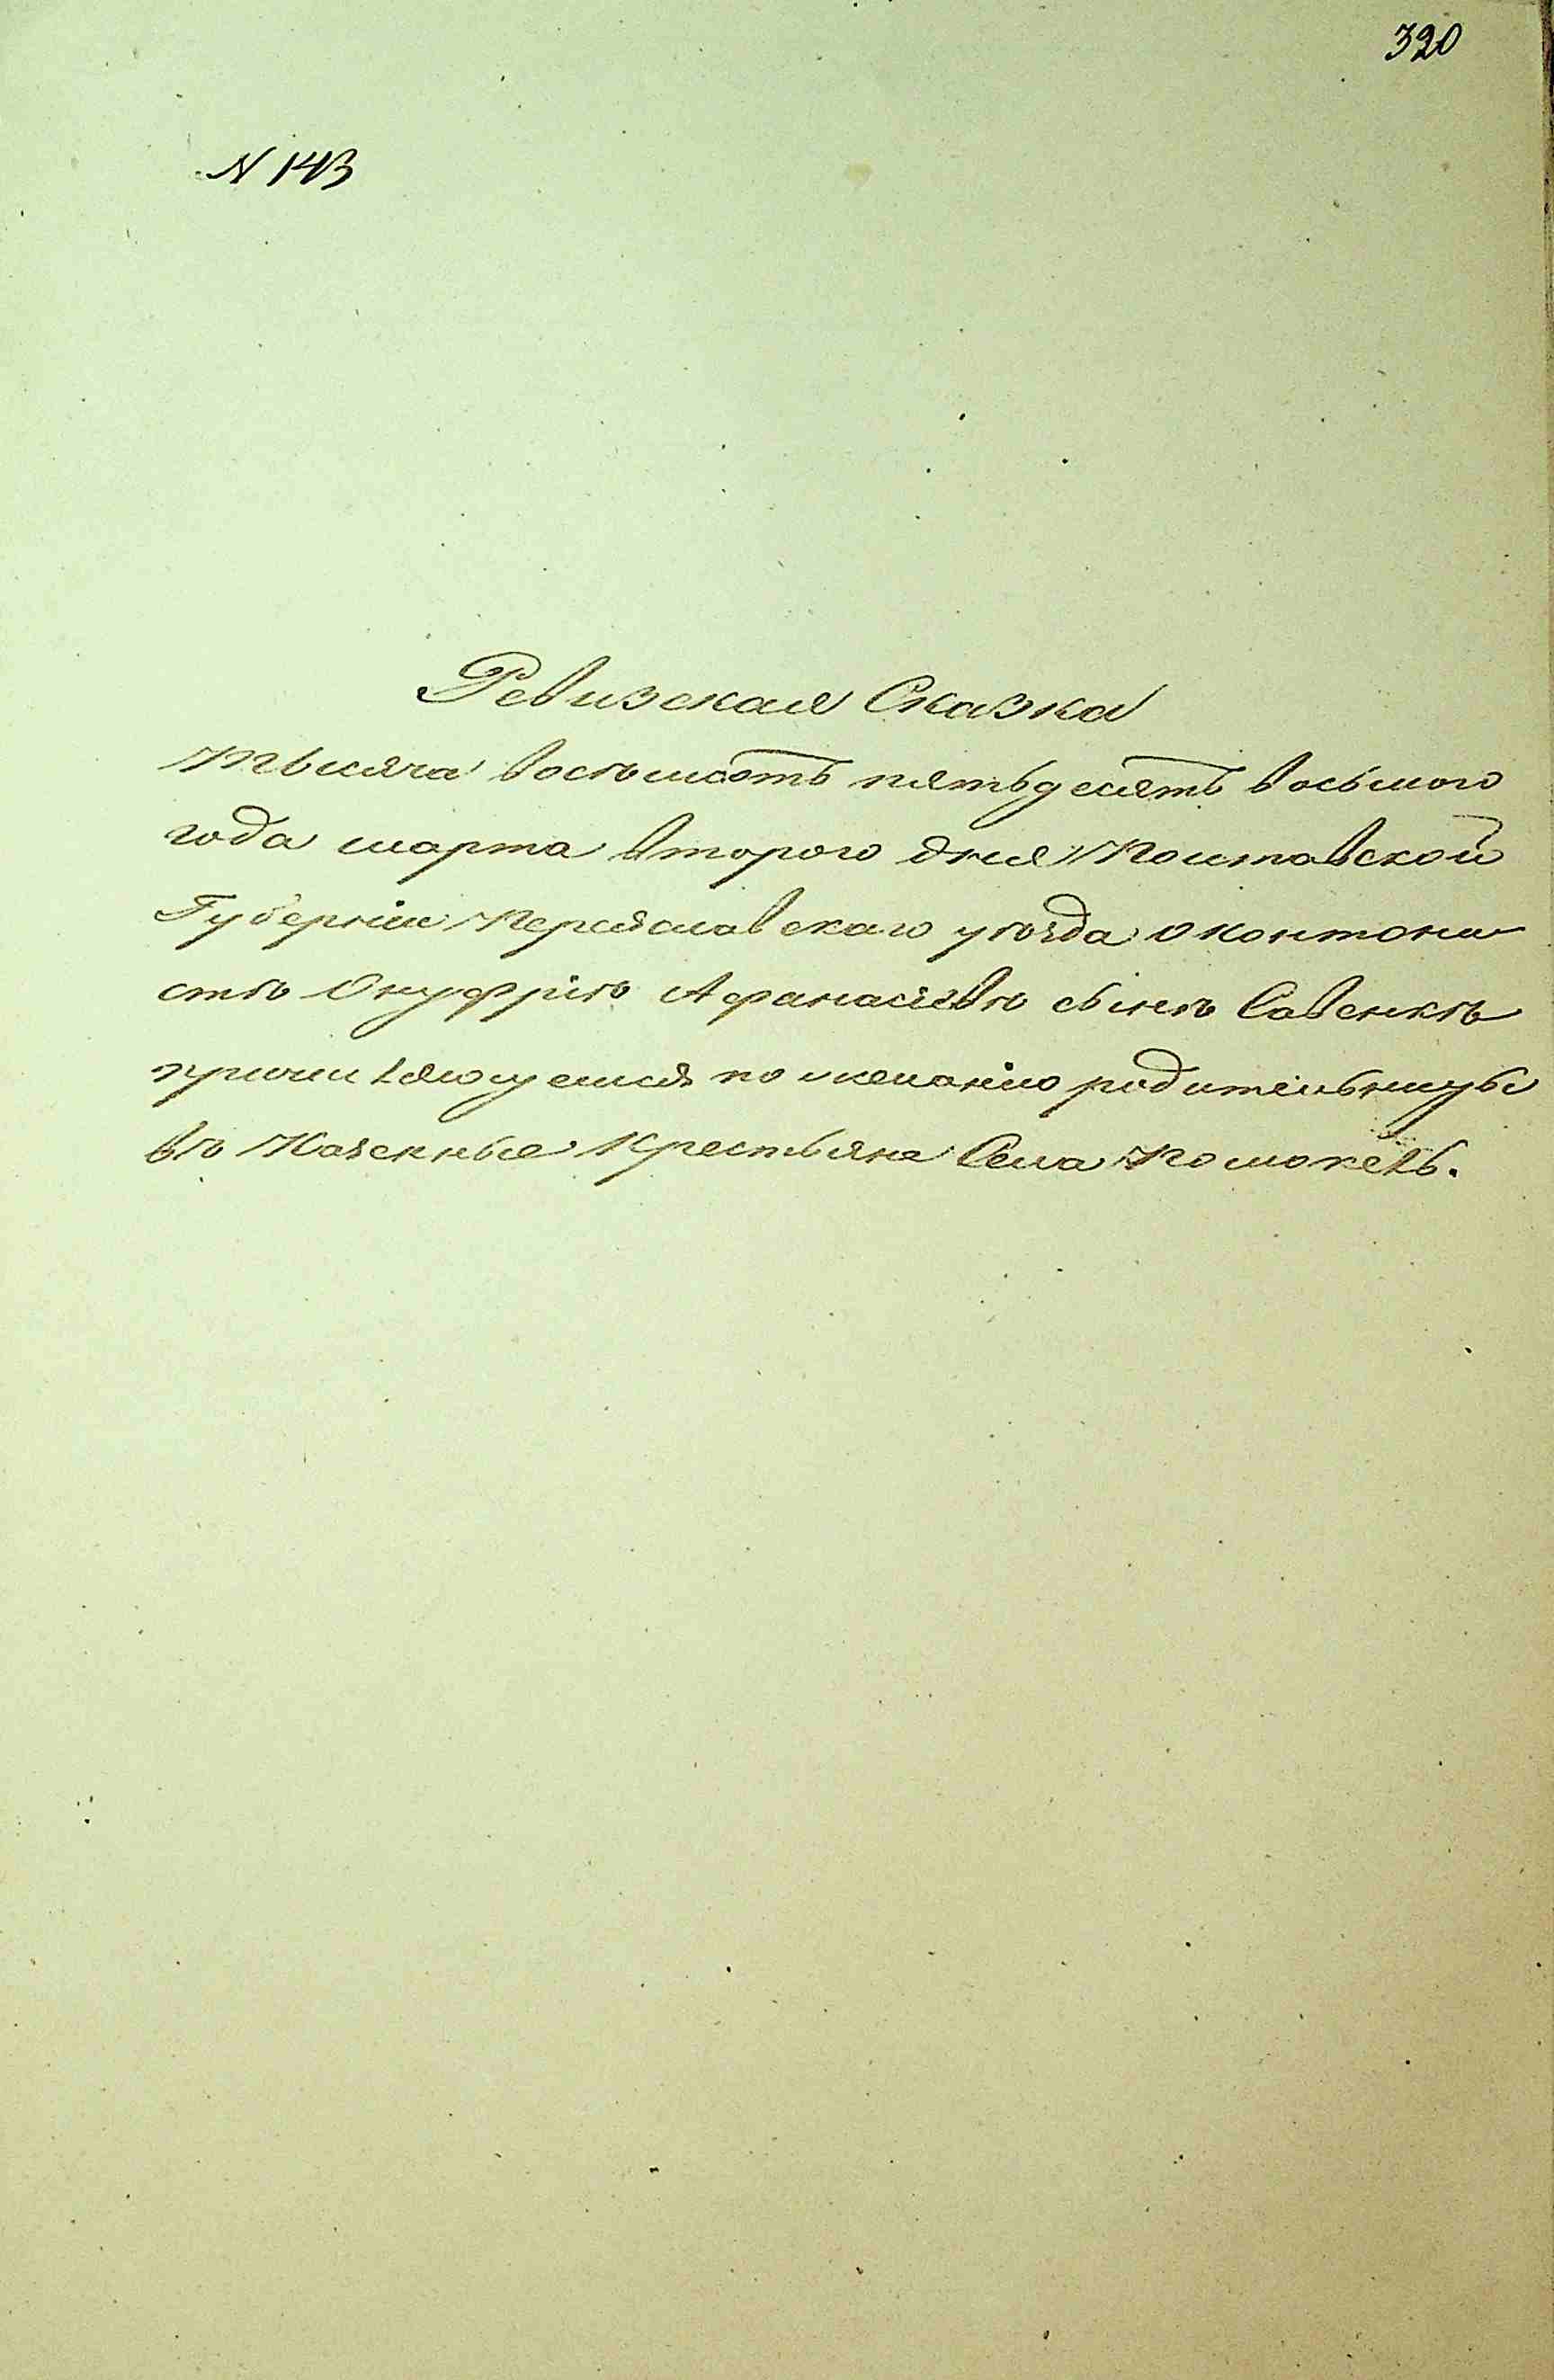 320
N 143
Ревизская Сказка
Тысяча восемьсотъ пятьдесятъ восьмого
года марта второго дня Полтавской
Губерніи Переяславскаго уѣзда о кантони
стѣ Онуфріѣ Афанасіевѣ сынѣ Савенкѣ
причисляющемся по желанію родительницы
въ Казенные Крестьяне Села Помоклъ.